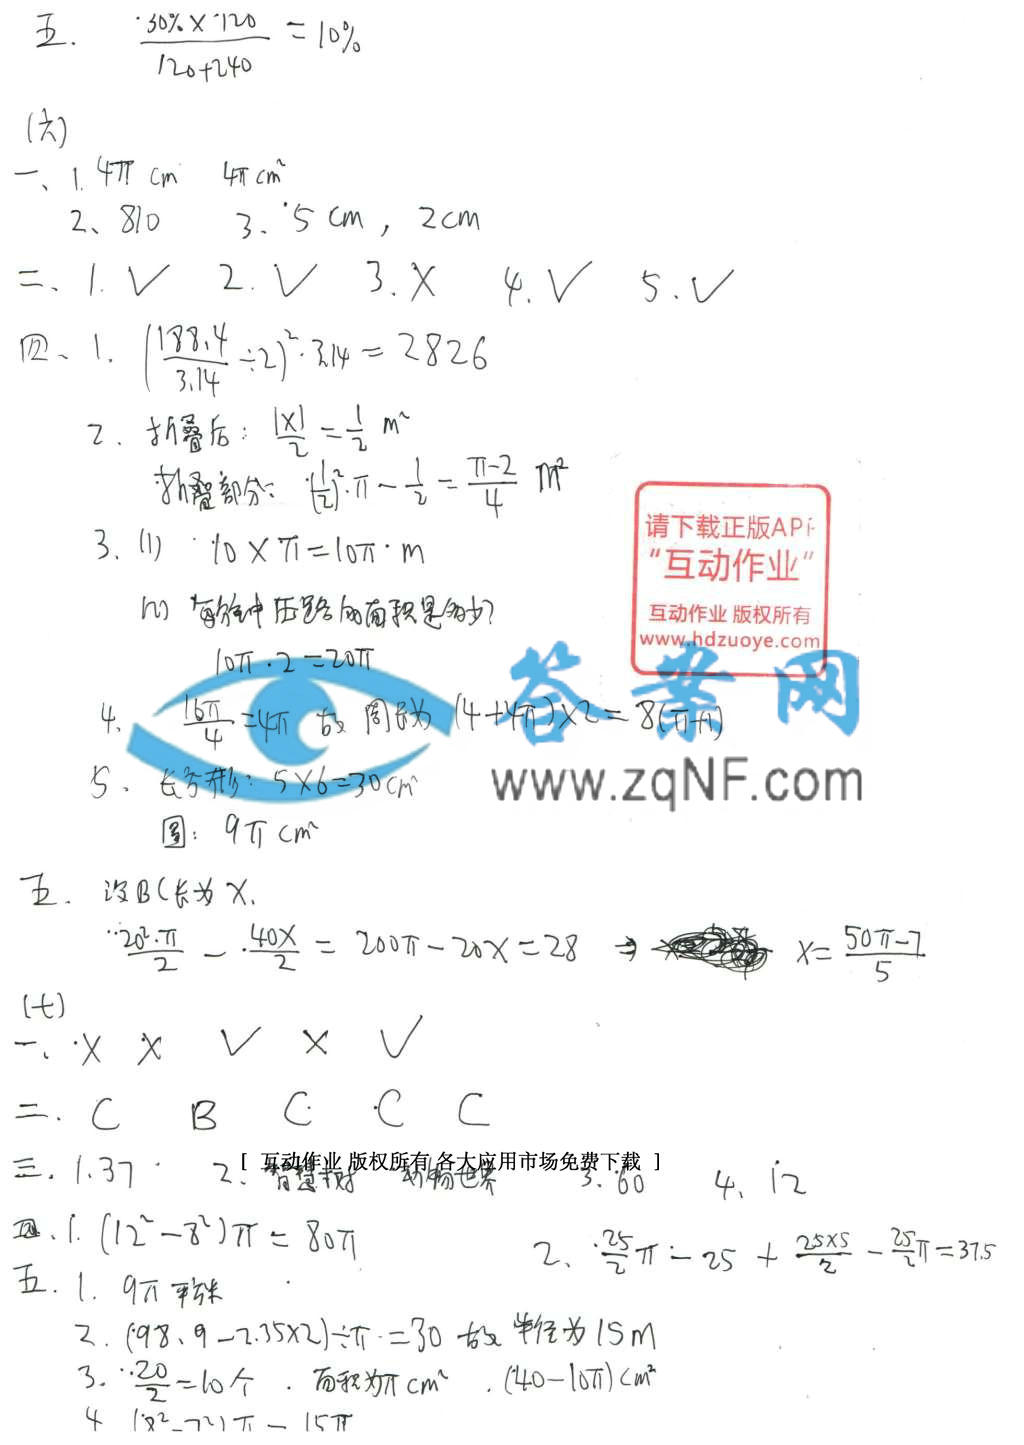 五. 30%×120/120+240 = 10%
(六)
一、1. 4π cm 4π cm²
2、810 3. 5 cm, 2cm
二、1. √ 2. √ 3. × 4. √ 5. √
四、1. (188.4/3.14 ÷2)²·3.14 = 2826
2. 折叠后: 1×1/2 = 1/2 m²
折叠部分: (1/2)²·π - 1/2 = π-2/4 m²
3. (1) 10×π=10π·m
(2) 每分钟压路的面积是多少?
10π·2=20π
4. 16π/4 =4π 故 周长为 (4+4π)×2= 8(π+1)
5. 长方形: 5×6=30cm²
圆: 9π cm²
五. 设BC长为X.
20²·π/2 - 40X/2 = 200π-20X=28 ⇒ X= 50π-7/5
(七)
一、× × √ × √
二. C B C C C
三. 1. 37 2. 智慧树 动物世界 3. 60 4. 12
四. 1. (12²-8²)π = 80π
2、25/2 π - 25 + 25×5/2 - 25/2 π=37.5
五. 1. 9π 平方米
2. (98.9-2.35×2)÷π=30 故 半径为15m
3. 20/2 =10个. 面积为π cm². (40-10π) cm²
4 (8²-7²)π = 15π
请下载正版AP
“互动作业”
互动作业 版权所有
www.hdzuoye.com
答案网
www.zqNF.com
[ 互动作业 版权所有 各大应用市场免费下载 ]